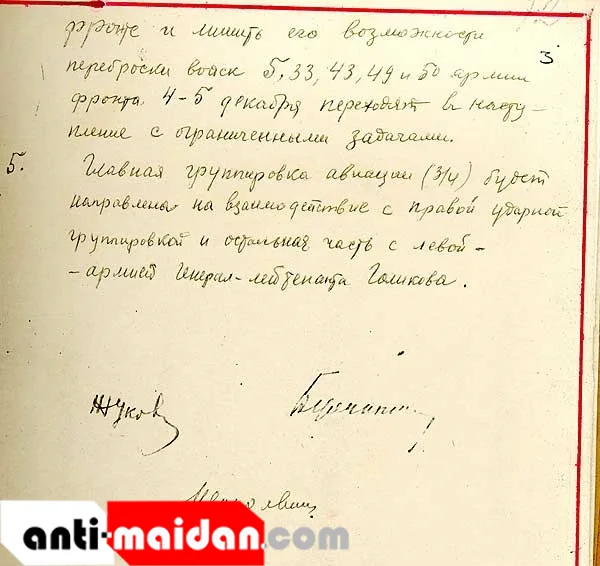 3
фронте и лишить его возможности
переброски войск 5, 33, 43, 49 и 50 армии
фронта 4-5 декабря переходят в насту-
пление с ограниченными задачами.
5. Главная группировка авиации (3/4) будет
направлена на взаимодействие с правой ударной
группировкой и остальная часть с левой-
-армией Генерал-лейтенанта Голикова.
Жуков
anti-maidan.com